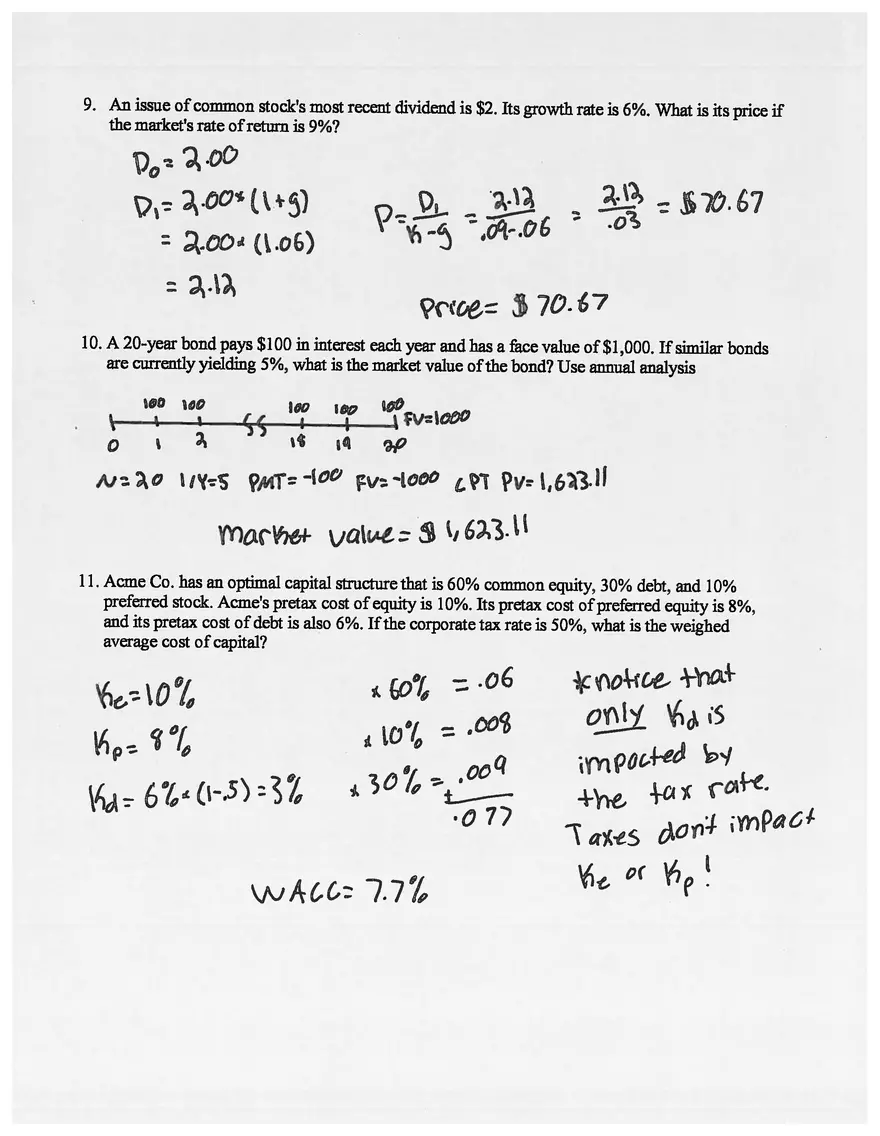 9. An issue of common stock's most recent dividend is $2. Its growth rate is 6%. What is its price if
the market's rate of return is 9%?
D₀ = 2.00
D₁ = 2.00*(1+g)
= 2.00*(1.06)
= 2.12
P = D₁/(K-g) = 2.12/(.09-.06) = 2.12/.03 = $70.67
Price = $70.67
10. A 20-year bond pays $100 in interest each year and has a face value of $1,000. If similar bonds
are currently yielding 5%, what is the market value of the bond? Use annual analysis
100 100 100 100 100
FV=1000
0 1 2 18 19 20
N=20 I/Y=5 PMT=-100 FV=-1000 CPT PV=1,623.11
Market value = $1,623.11
11. Acme Co. has an optimal capital structure that is 60% common equity, 30% debt, and 10%
preferred stock. Acme's pretax cost of equity is 10%. Its pretax cost of preferred equity is 8%,
and its pretax cost of debt is also 6%. If the corporate tax rate is 50%, what is the weighed
average cost of capital?
Ke=10% * 60% = .06
Kp= 8% * 10% = .008
Kd= 6%*(1-.5)=3% * 30% = + .009
.077
*notice that
only Kd is
impacted by
the tax rate.
Taxes don't impact
Ke or Kp!
WACC= 7.7%